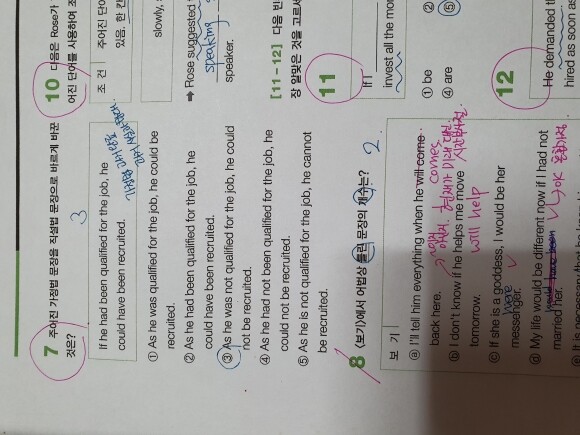 7 주어진 가정법 문장을 직설법 문장으로 바르게 바꾼
것은?
3
If he had been qualified for the job, he
could have been recruited.
① As he was qualified for the job, he could be
recruited.
② As he had been qualified for the job, he
could have been recruited.
③ As he was not qualified for the job, he could
not be recruited.
④ As he had not been qualified for the job, he
could not be recruited.
⑤ As he is not qualified for the job, he cannot
be recruited.
8 〈보기〉에서 어법상 틀린 문장의 개수는?
2
보기
ⓐ I'll tell him everything when he will come
comes
back here.
ⓑ I don't know if he helps me move
will help
tomorrow.
ⓒ If she is a goddess, I would be her
were
messenger.
ⓓ My life would be different now if I had not
married her.
would have been
OK
10 다음은 Rose가
어진 단어를 사용하여 조
조건
주어진 단어
있음, 한 칸
slowly,
➡ Rose suggested
speaking
speaker.
[11-12] 다음 빈
장 알맞은 것을 고르세
11
If I
invest all the mon
① be
②
④ are
⑤
12
He demanded th
hired as soon as